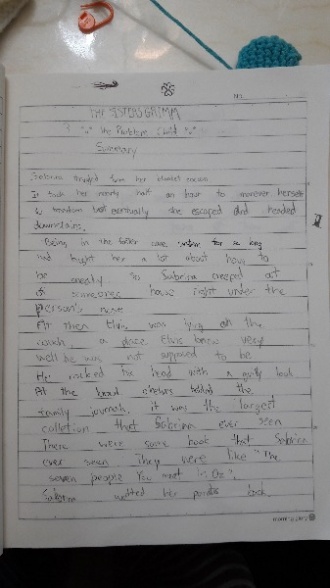 No.
THE SISTERS GRIMM
The Problem Child
Summary
Sabrina from her blanket
It took her nearly half an hour to herself
to freedom but eventually she escaped and headed
downstairs.
Being in the foster care system for a long
had taught her a lot about how to
be sneaky. So Sabrina creeped out
of someones house right under the
person's nose
At then Elvis was lying on the
couch a place Elvis knew very
well he was not supposed to be
He his head with a guilty look
All the book shelves the
family journals, it was the largest
collection that Sabrina ever seen
There were some book that Sabrina
ever seen They were like "The
seven people You meet in Oz".
Sabrina her back